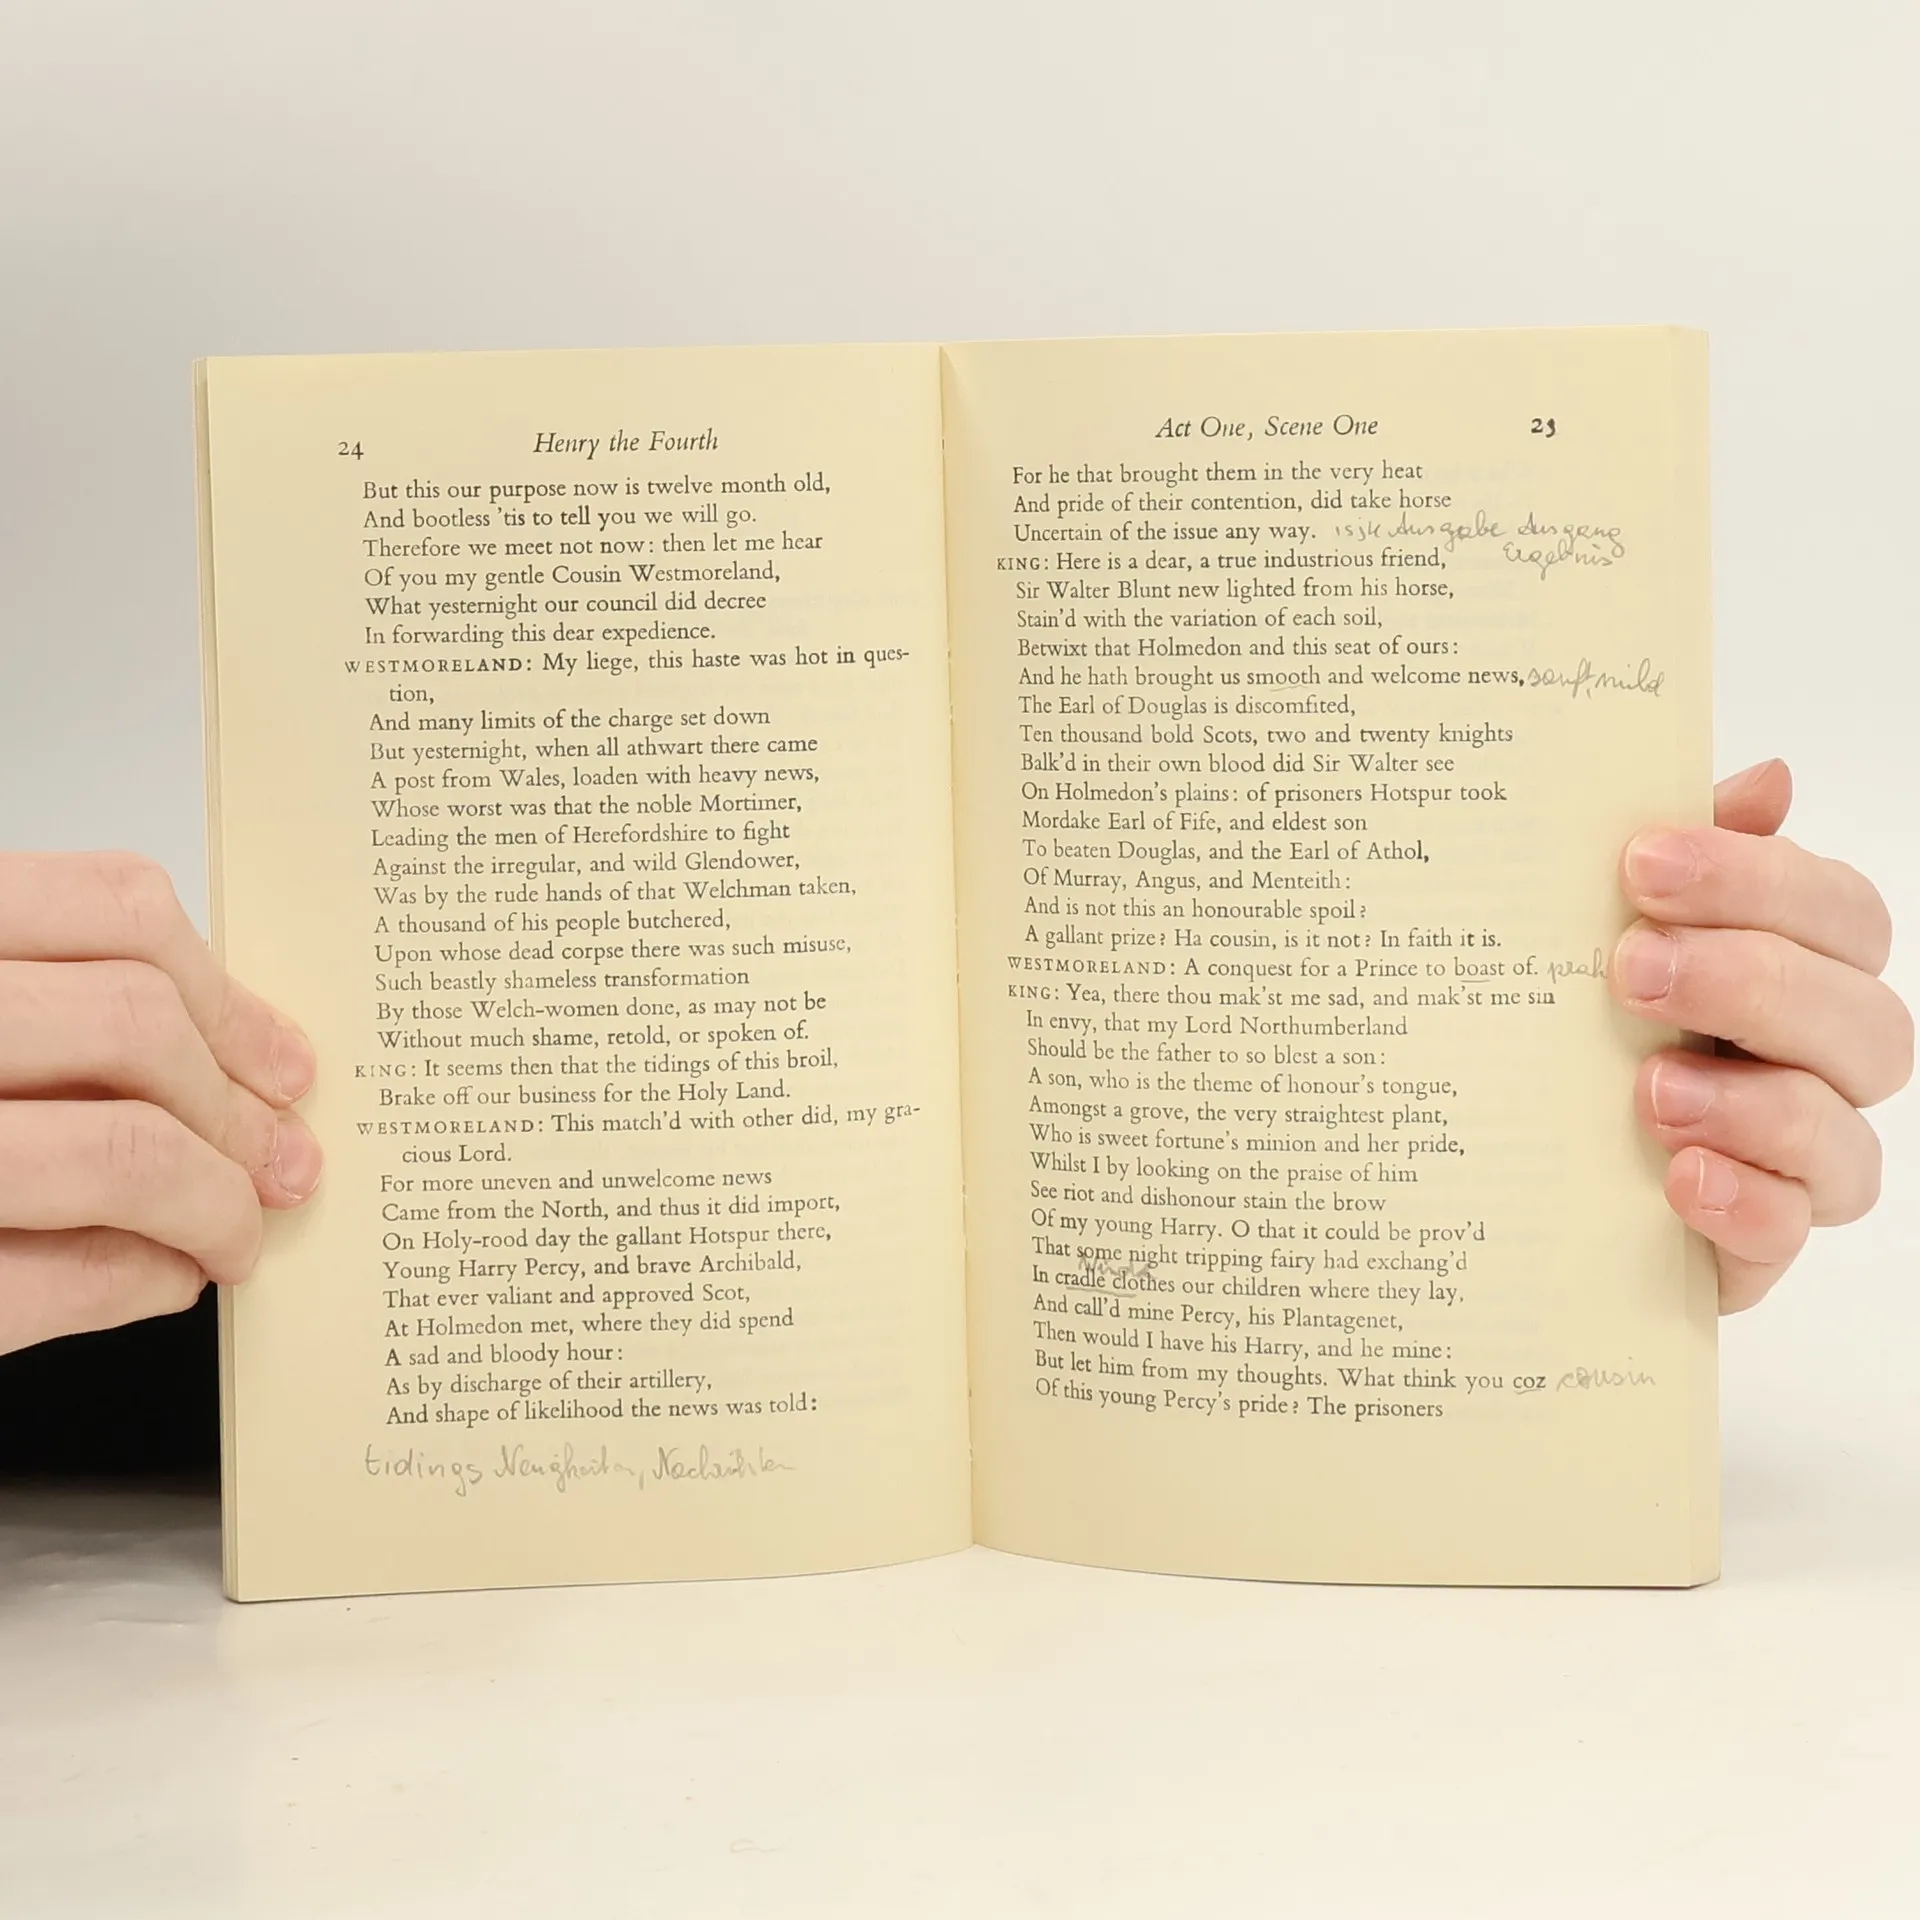 24 Henry the Fourth
But this our purpose now is twelve month old,
And bootless 'tis to tell you we will go.
Therefore we meet not now: then let me hear
Of you my gentle Cousin Westmoreland,
What yesternight our council did decree
In forwarding this dear expedience.
WESTMORELAND: My liege, this haste was hot in ques-
tion,
And many limits of the charge set down
But yesternight, when all athwart there came
A post from Wales, loaden with heavy news,
Whose worst was that the noble Mortimer,
Leading the men of Herefordshire to fight
Against the irregular, and wild Glendower,
Was by the rude hands of that Welchman taken,
A thousand of his people butchered,
Upon whose dead corpse there was such misuse,
Such beastly shameless transformation
By those Welch-women done, as may not be
Without much shame, retold, or spoken of.
KING: It seems then that the tidings of this broil,
Brake off our business for the Holy Land.
WESTMORELAND: This match'd with other did, my gra-
cious Lord.
For more uneven and unwelcome news
Came from the North, and thus it did import,
On Holy-rood day the gallant Hotspur there,
Young Harry Percy, and brave Archibald,
That ever valiant and approved Scot,
At Holmedon met, where they did spend
A sad and bloody hour:
As by discharge of their artillery,
And shape of likelihood the news was told:
tidings Neuigkeiten, Nachrichten
Act One, Scene One
For he that brought them in the very heat
And pride of their contention, did take horse
Uncertain of the issue any way. Ausgabe Ausgang
Ergebnis
KING: Here is a dear, a true industrious friend,
Sir Walter Blunt new lighted from his horse,
Stain'd with the variation of each soil,
Betwixt that Holmedon and this seat of ours:
And he hath brought us smooth and welcome news, sanft, mild
The Earl of Douglas is discomfited,
Ten thousand bold Scots, two and twenty knights
Balk'd in their own blood did Sir Walter see
On Holmedon's plains: of prisoners Hotspur took
Mordake Earl of Fife, and eldest son
To beaten Douglas, and the Earl of Athol,
Of Murray, Angus, and Menteith:
And is not this an honourable spoil?
A gallant prize? Ha cousin, is it not? In faith it is.
WESTMORELAND: A conquest for a Prince to boast of.
KING: Yea, there thou mak'st me sad, and mak'st me sin
In envy, that my Lord Northumberland
Should be the father to so blest a son:
A son, who is the theme of honour's tongue,
Amongst a grove, the very straightest plant,
Who is sweet fortune's minion and her pride,
Whilst I by looking on the praise of him
See riot and dishonour stain the brow
Of my young Harry. O that it could be prov'd
That some night tripping fairy had exchang'd
In cradle clothes our children where they lay,
And call'd mine Percy, his Plantagenet,
Then would I have his Harry, and he mine:
But let him from my thoughts. What think you coz cousin
Of this young Percy's pride? The prisoners